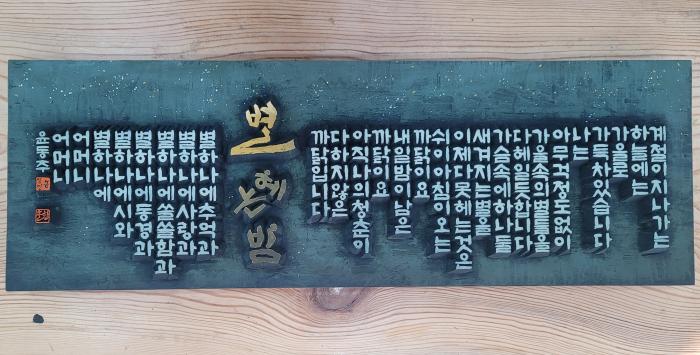 계절이지나가는
하늘에는
가을로
가득차있습니다
나는
아무걱정도없이
가을속의별들을
다헤일듯합니다
가슴속에하나둘
새겨지는별을
이제다못헤는것은
쉬이아침이오는
까닭이요
내일밤이남은
까닭이요
아직나의청춘이
다하지않은
까닭입니다
별헤는밤
별하나에추억과
별하나에사랑과
별하나에쓸쓸함과
별하나에동경과
별하나에시와
별하나에
어머니
어머니
윤동주